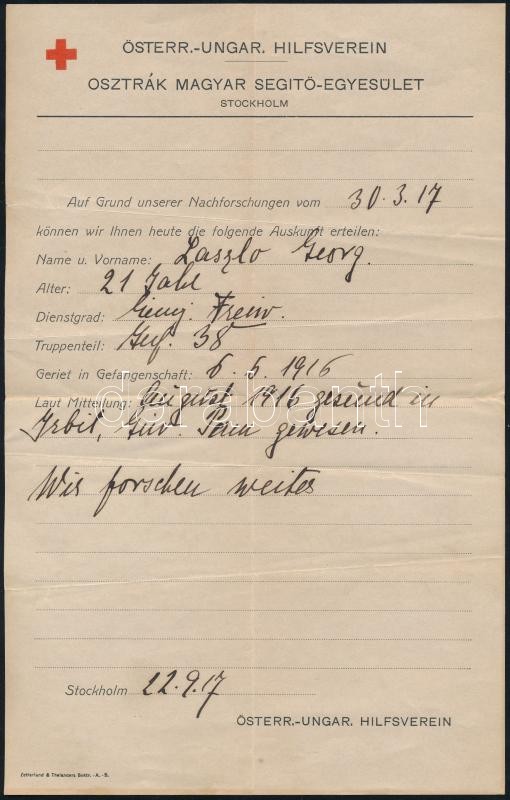 ÖSTERR.-UNGAR. HILFSVEREIN
OSZTRÁK MAGYAR SEGITÖ-EGYESÜLET
STOCKHOLM
Auf Grund unserer Nachforschungen vom 30.3.17
können wir Ihnen heute die folgende Auskunft erteilen:
Name u. Vorname: Laszlo Georg.
Alter: 21 Jahr
Dienstgrad: Einj. Freiw.
Truppenteil: Inf. 38
Geriet in Gefangenschaft: 6.5.1916
darabanth
Laut Mitteilung: August 1916 gesund in
Irbit, Guv. Perm gewesen.
Wir forschen weiter
Stockholm 22.9.17
ÖSTERR.-UNGAR. HILFSVEREIN
Zetterlund & Thelanders Boktr.-A.-B.